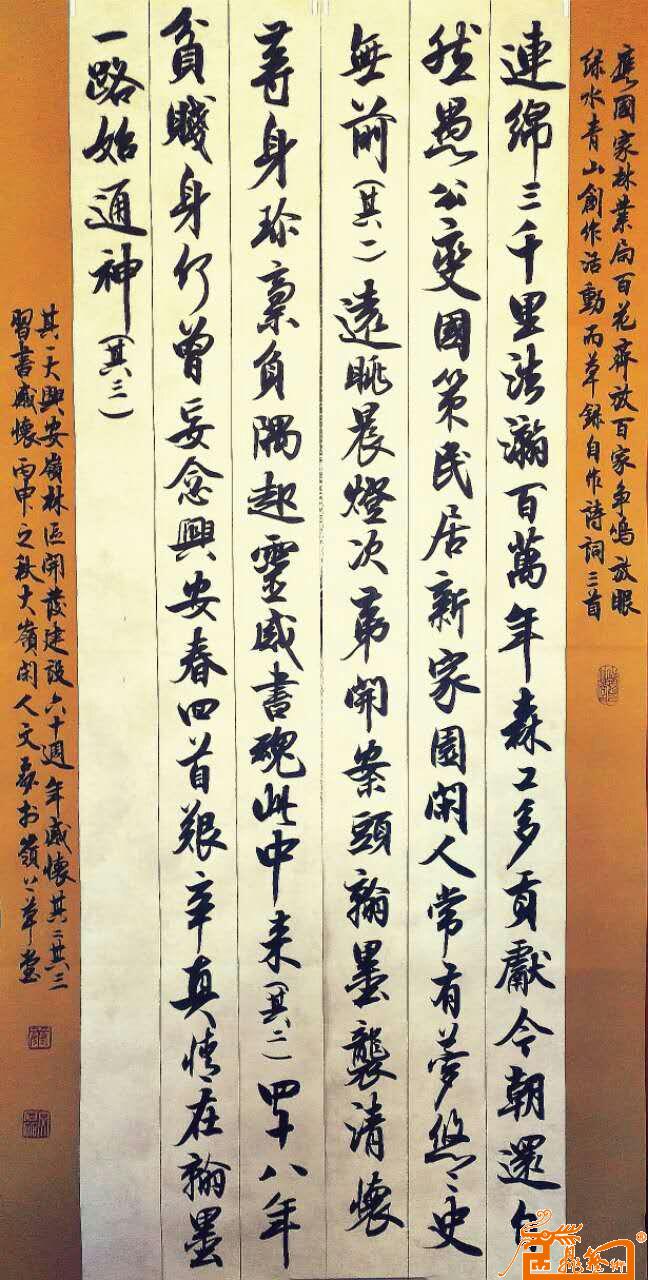 應國家林業局百花齊放百家争鳴放眼
绿水青山創作活動而草録自作詩詞三首
連綿三千里浩瀚百萬年森工多貢獻今朝還自
然愚公变國策民居新家園閑人常有夢悠々史
無前（其一）遠眺晨燈次第開案頭翰墨襲清懷
等身珍稾負隅起靈感書魂此中来（其二）四十八年
貧賤身何曾妄念興安春四首艱辛真情在翰墨
一路始通神（其三）
其一大興安嶺林區開發建設六十週年感懷其二其三
習書感懷丙申之秋大嶺閑人文